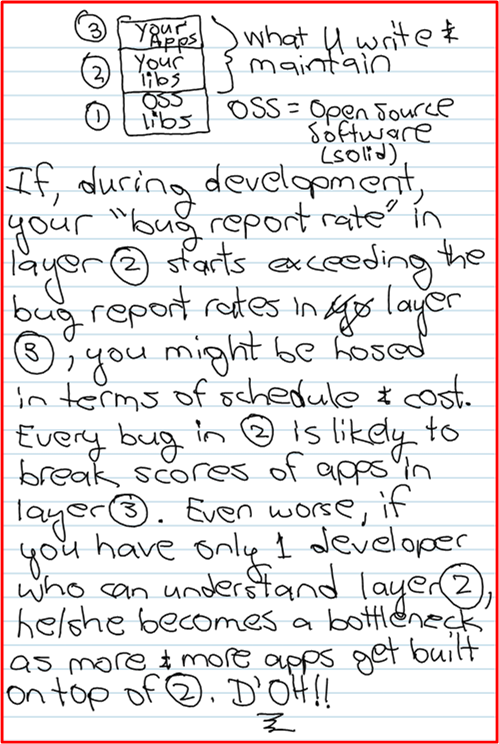 ③ Your Apps
② your libs
① OSS libs
what U write &
maintain
OSS = Open Source
Software
(solid)
If, during development,
your "bug report rate" in
layer ② starts exceeding the
bug report rates in layer
③, you might be hosed
in terms of schedule & cost.
Every bug in ② is likely to
break scores of apps in
layer ③. Even worse, if
you have only 1 developer
who can understand layer ②,
he/she becomes a bottleneck
as more & more apps get built
on top of ②. D'OH!!